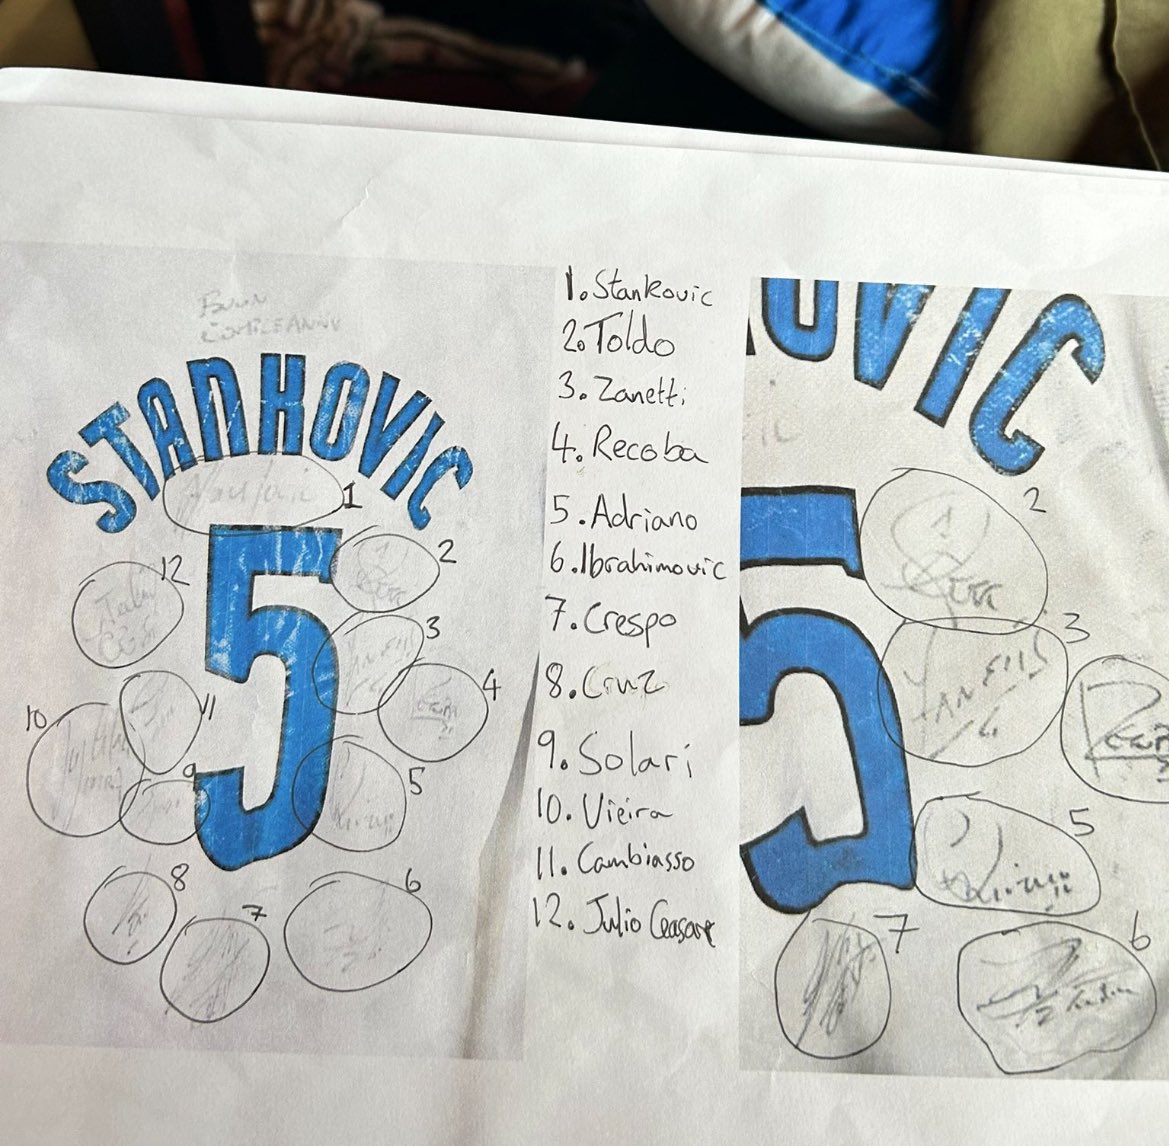 BUON
COMPLEANNO
STANKOVIC
1
5
2
3
4
5
6
7
8
9
10
11
12
1. Stankovic
2. Toldo
3. Zanetti
4. Recoba
5. Adriano
6. Ibrahimovic
7. Crespo
8. Cruz
9. Solari
10. Vieira
11. Cambiasso
12. Julio Ceasare
OVIC
5
2
3
5
6
7